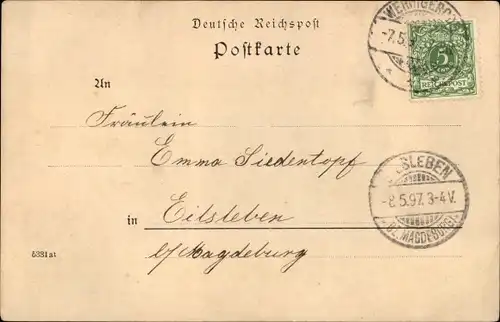 Deutsche Reichspost
Postkarte
WERNIGERO
-7.5.
5
REICHSPOST
An
Fräulein
Emma Siedentopf
EILSLEBEN
-8.5.97. 3-4V.
BZ. MAGDEBURG
in Eilsleben
b/Magdeburg
5331 at